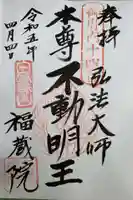 奉拝
弘法大師
本尊不動明王
福蔵院
令和五年
四月四日